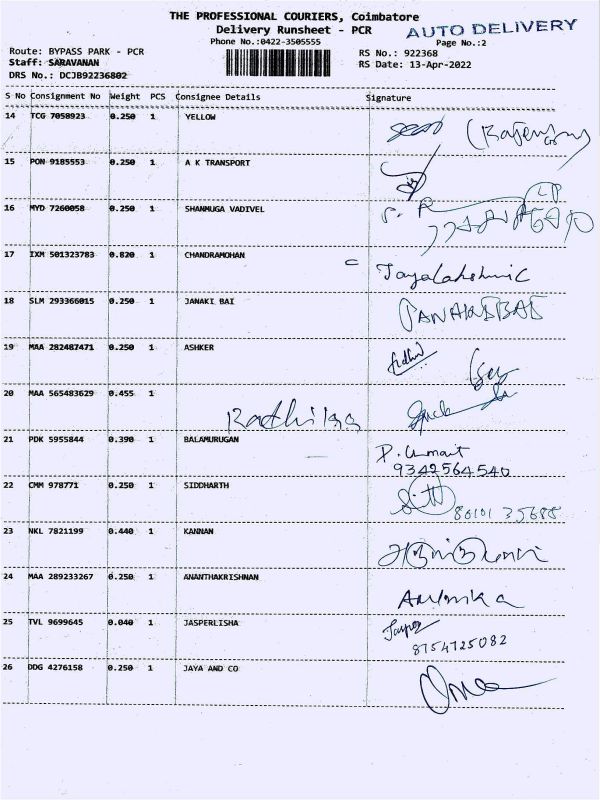 THE PROFESSIONAL COURIERS, Coimbatore
Delivery Runsheet - PCR
AUTO DELIVERY
Phone No.:0422-3505555
Page No.:2
Route: BYPASS PARK - PCR
RS No.: 922368
Staff: SARAVANAN
RS Date: 13-Apr-2022
DRS No.: DCJB92236802
S No Consignment No Weight PCS Consignee Details Signature
14 TCG 7058923 0.250 1 YELLOW
15 PON 9185553 0.250 1 A K TRANSPORT
16 MYD 7260058 0.250 1 SHANMUGA VADIVEL
17 IXM 501323783 0.820 1 CHANDRAMOHAN
18 SLM 293366015 0.250 1 JANAKI BAI
19 MAA 282487471 0.250 1 ASHKER
20 MAA 565483629 0.455 1
21 PDK 5955844 0.390 1 BALAMURUGAN
9342564540
22 CMM 978771 0.250 1 SIDDHARTH
80101 35688
23 NKL 7821199 0.440 1 KANNAN
24 MAA 289233267 0.250 1 ANANTHAKRISHNAN
25 TVL 9699645 0.040 1 JASPERLISHA
8754725082
26 DDG 4276158 0.250 1 JAYA AND CO